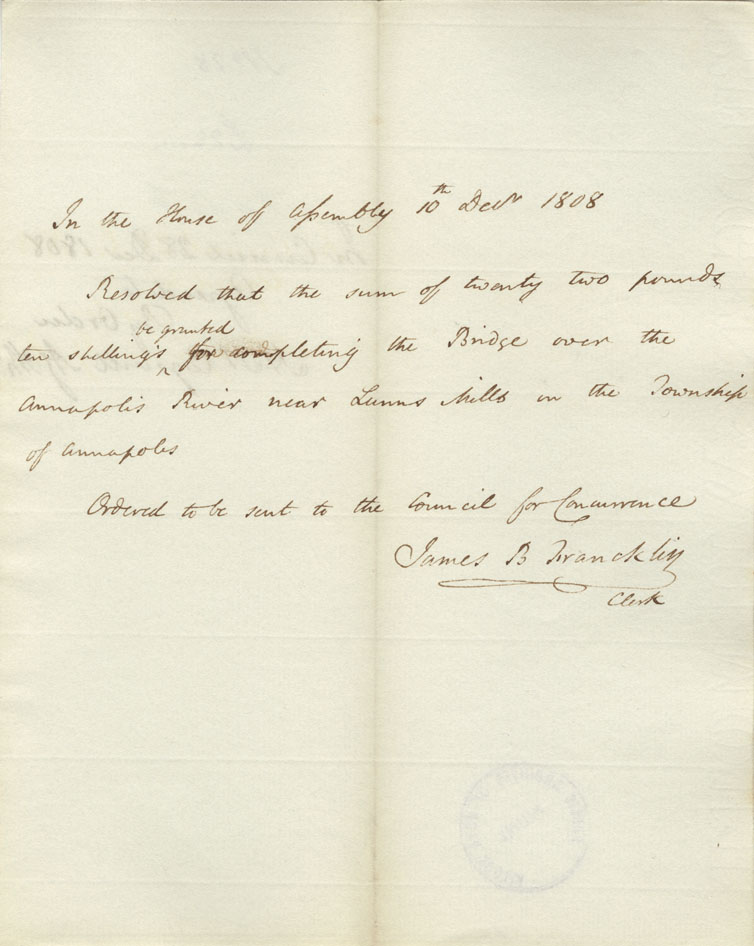 In the House of Assembly 10th Decr 1808
Resolved that the sum of twenty two pounds
be granted
ten shillings ^ for completing the Bridge over the
Annapolis River near Lunns Mills in the Township
of Annapolis
Ordered to be sent to the Council for Concurrence
James B Francklin
Clerk